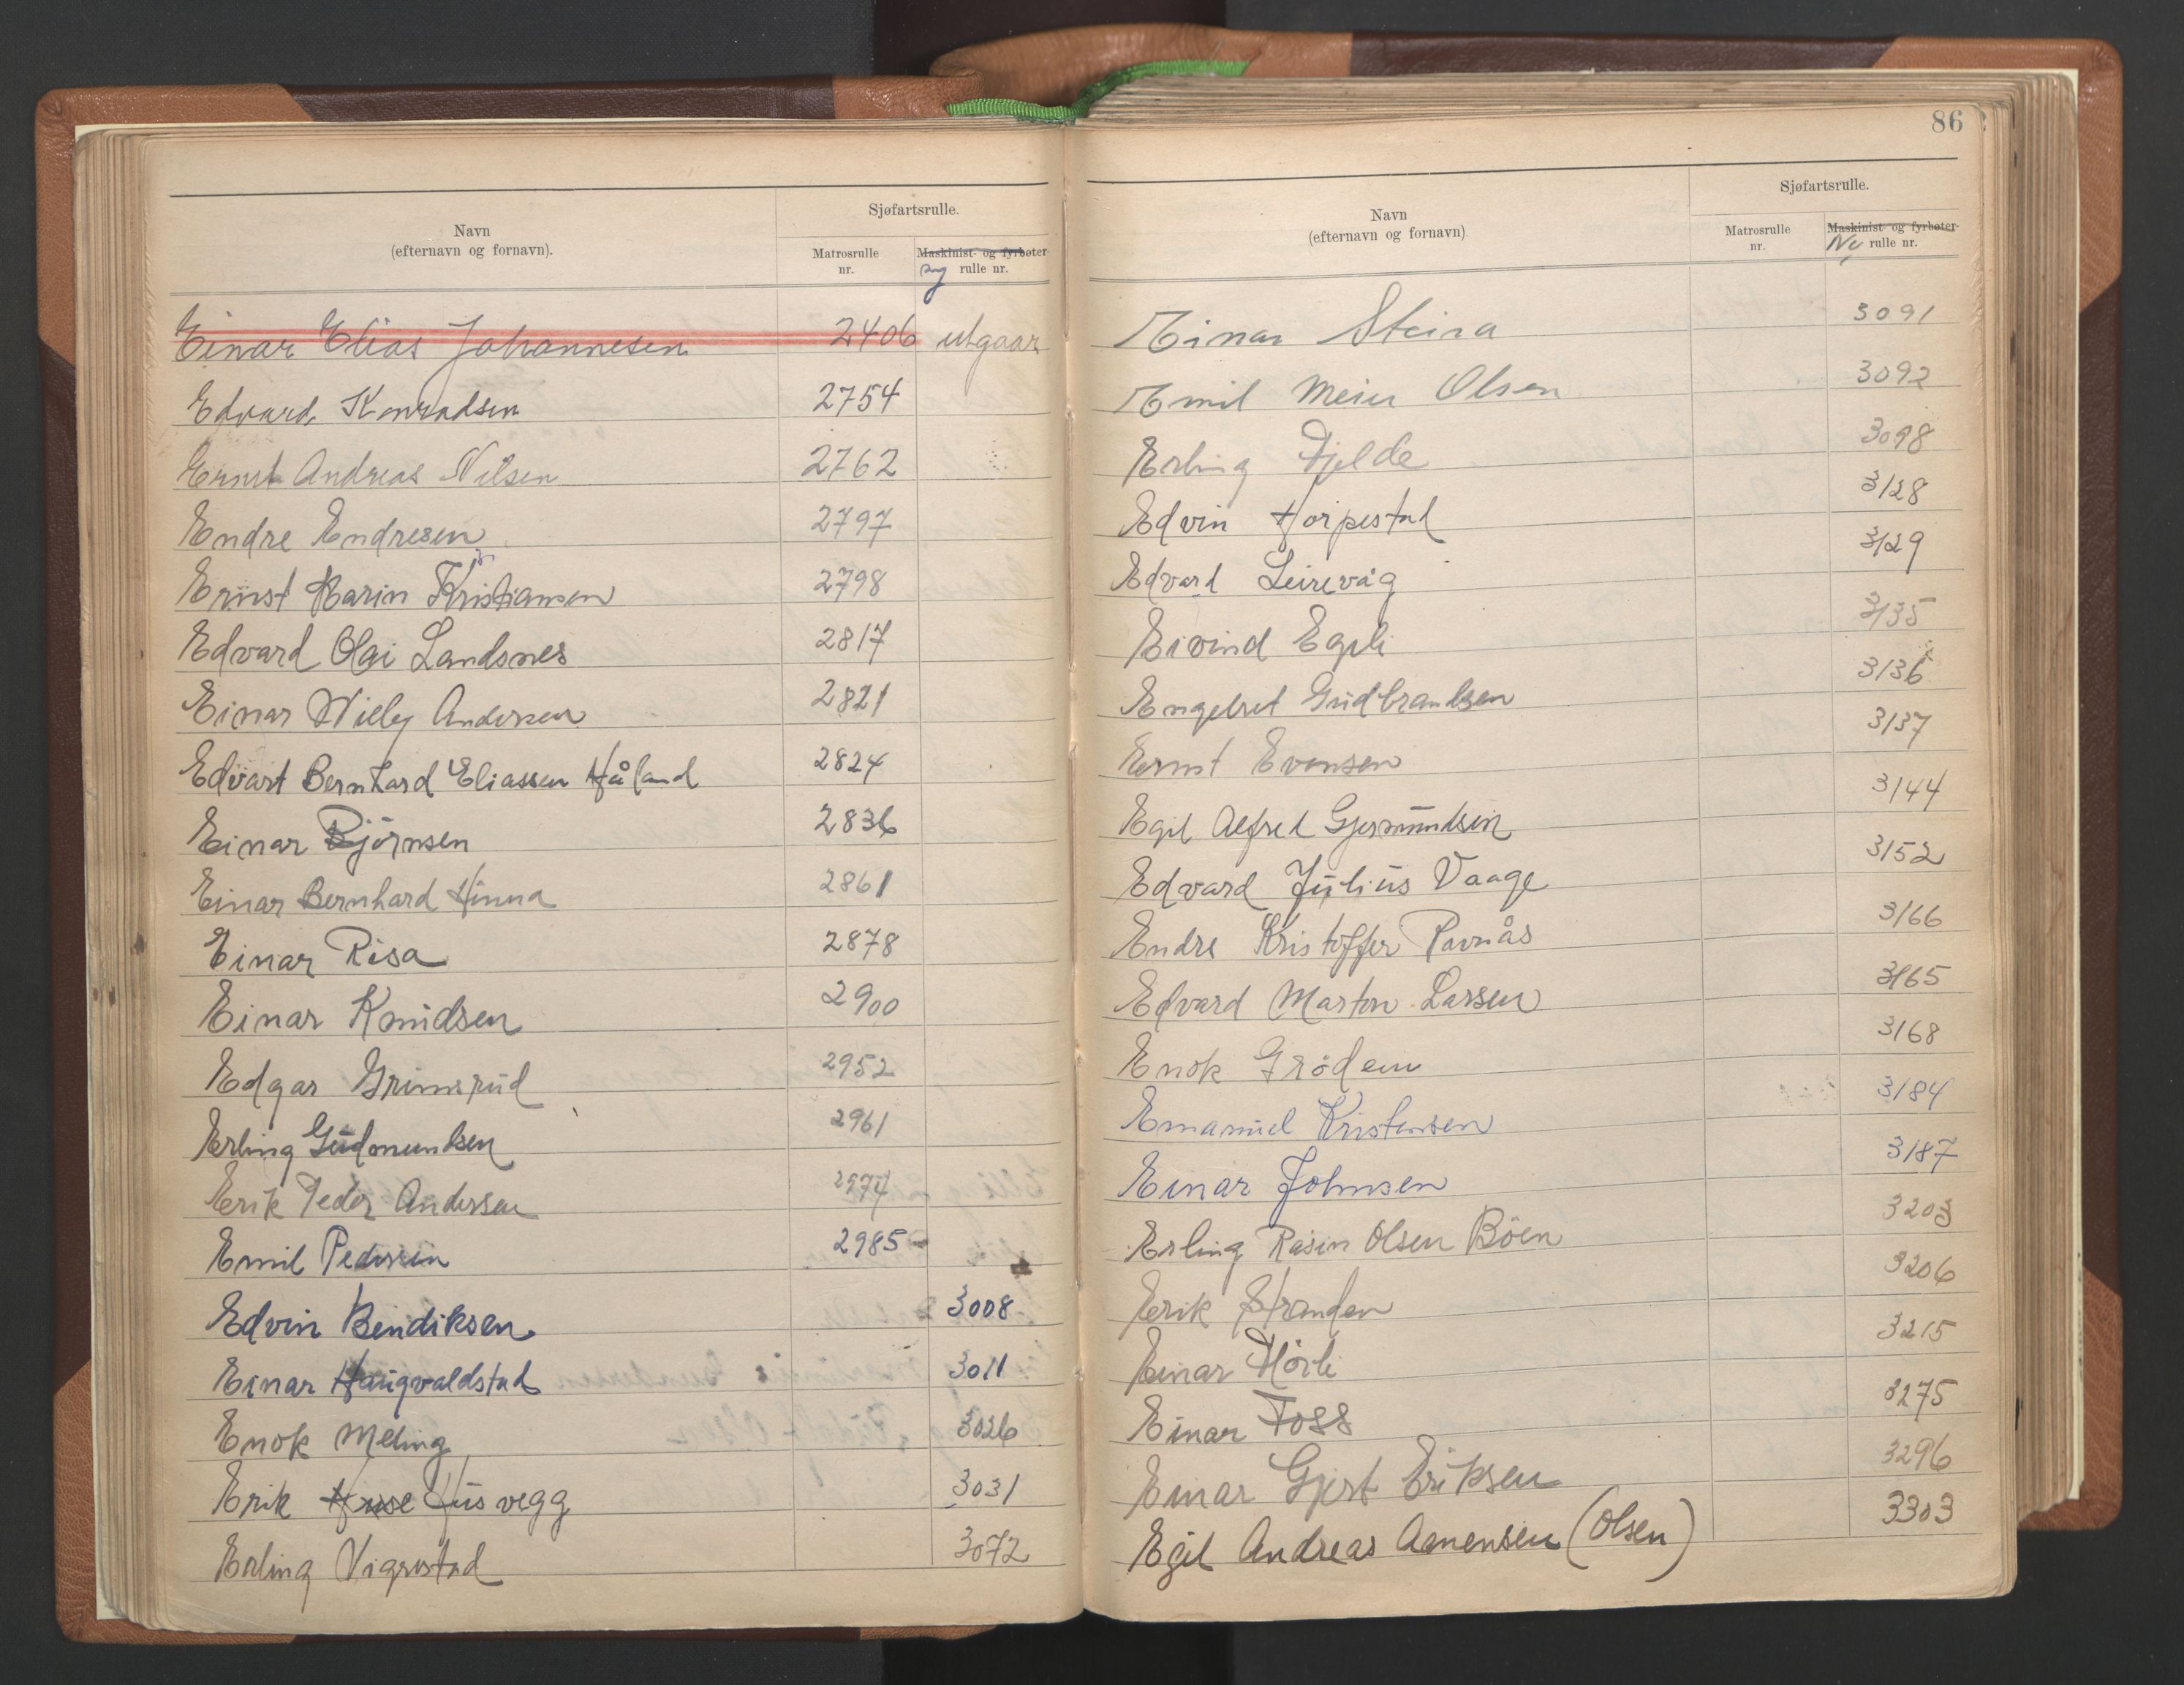 Navn
(efternavn og fornavn).
Sjøfartsrulle.
Matrosrulle
nr.
Maskinist- og fyrbøter-
ny rulle nr.
Einar Elias Johannesen 2406 utgaar
Edvard Konradsen 2754
Ernst Andreas Nilsen 2762
Endre Endresen 2797
Ernst Marin Kristiansen 2798
Edvard Olai Landsnes 2817
Einar Willy Andersen 2821
Edvart Bernhard Eliassen Håland 2824
Einar Björnsen 2836
Einar Bernhard Hinna 2861
Einar Risa 2878
Einar Knudsen 2900
Edgar Grimsrud 2952
Erling Gudmundsen 2961
Erik Peder Andersen 2974
Emil Pedersen 2985
Edvin Bendiksen 3008
Einar Haugvaldstad 3011
Enok Meling 3026
Erik Huse Husvegg 3031
Erling Vigrestad 3072
86
Navn
(efternavn og fornavn)
Sjøfartsrulle.
Matrosrulle
nr.
Maskinist- og fyrbøter-
Ny rulle nr.
Einar Steira 3091
Emil Meier Olsen 3092
Erling Fjelde 3098
Edvin Horpestad 3128
Edvard Leirevåg 3129
Eivind Egeli 3135
Engelret Gudbrandsen 3136
Ernst Evensen 3137
Egil Alfred Gjermundsen 3144
Edvard Julius Vaage 3152
Endre Kristoffer Ravnås 3166
Edvard Marton Larsen 3165
Enok Grödem 3168
Emanuel Kristensen 3184
Einar Johnsen 3187
Erling Rasin Olsen Böen 3203
Erik Stranden 3206
Einar Hörli 3215
Einar Foss 3275
Einar Gjert Eriksen 3296
Egil Andreas Aanensen (Olsen) 3303